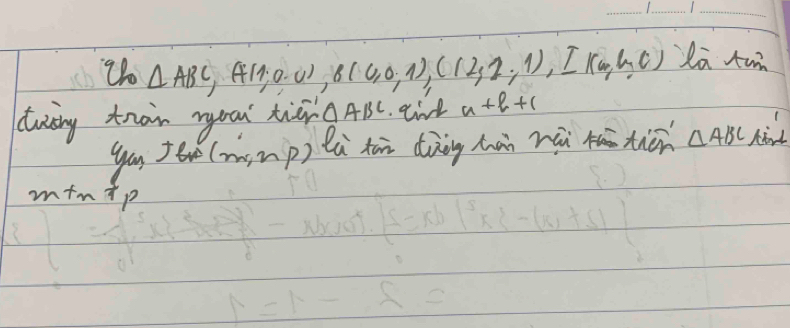 Cho △ABC, A(1;0;0), B(0,0,1), C(2;2;1), I(a,b,c) là tâm
đường tròn ngoại tiếp △ABC. tính a+b+c
Gọi J (m,n,p) là tâm đường tròn nội tiếp △ABC tính
m+n+p